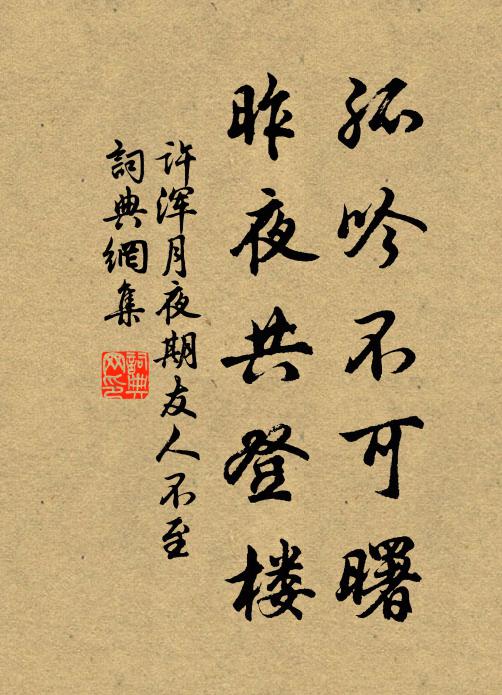 孤吟不可曙
昨夜共登楼
许浑月夜期友人不至
詞典網集
詞典网印